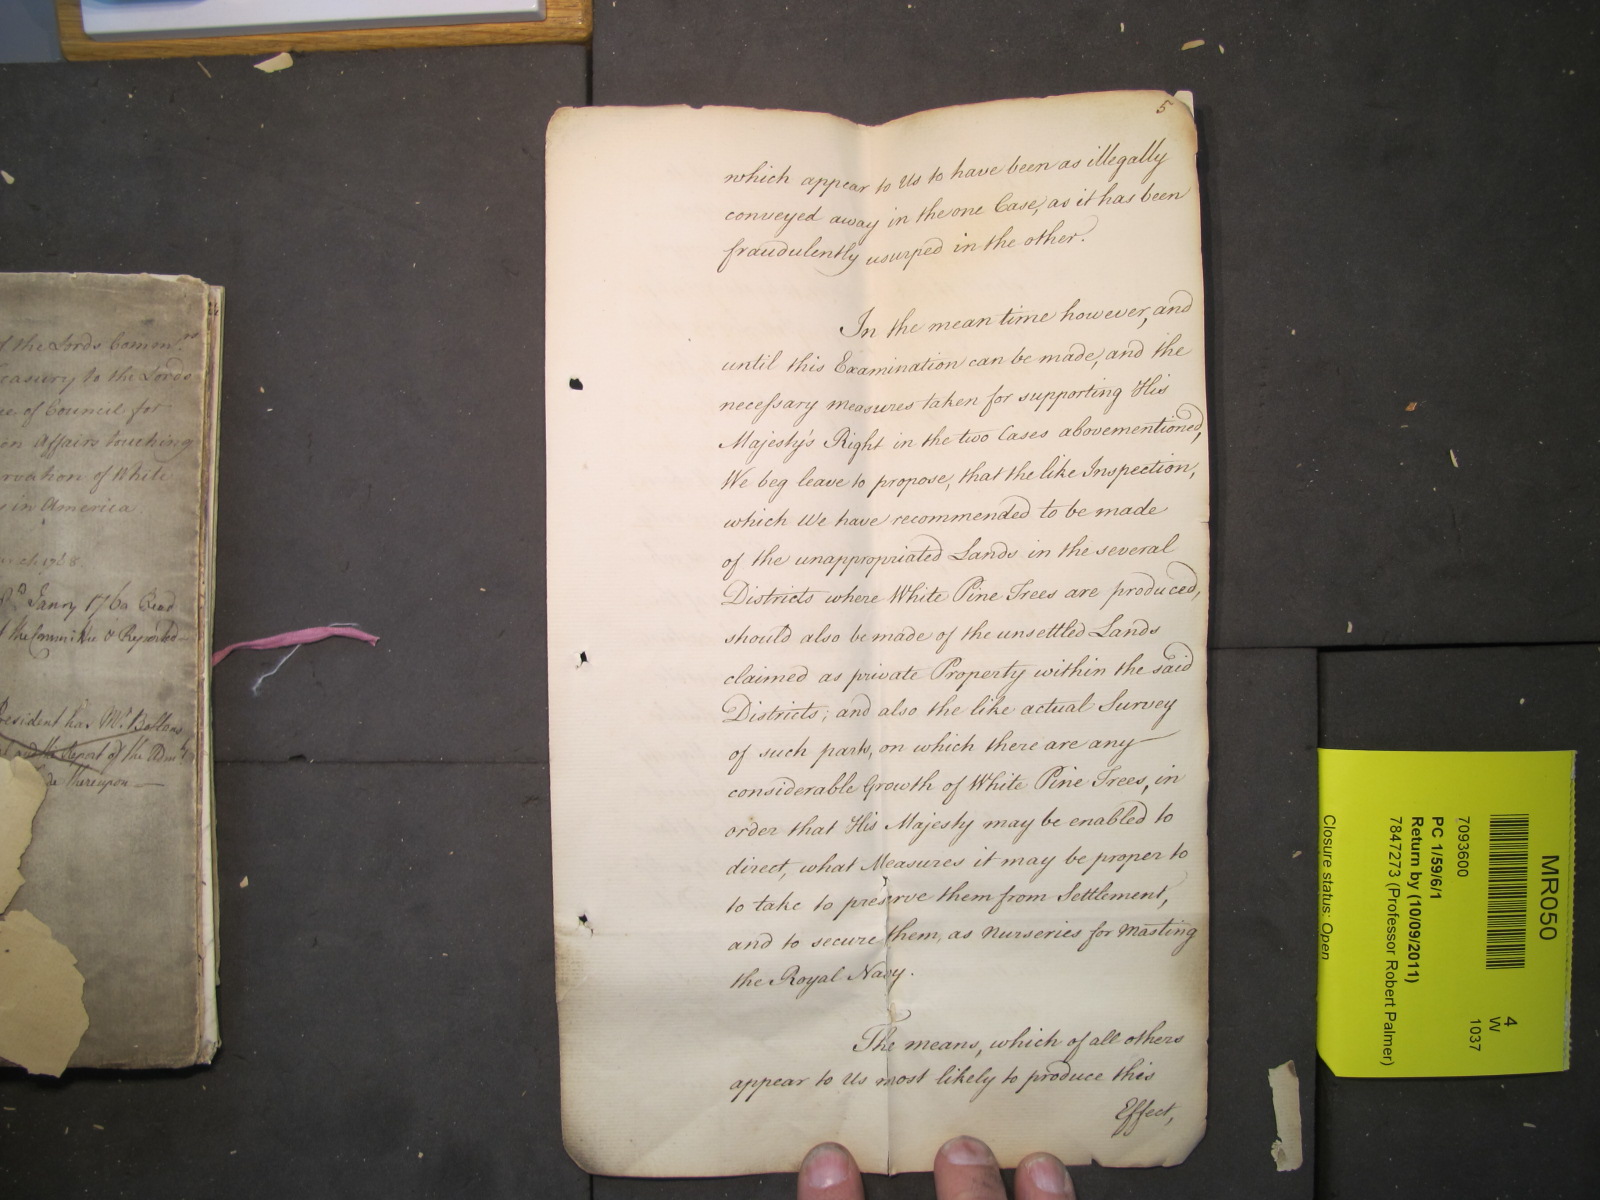 5
which appear to Us to have been as illegally
conveyed away in the one Case, as it has been
fraudulently usurped in the other.
In the mean time however, and
until this Examination can be made, and the
necessary measures taken for supporting His
Majesty's Right in the two Cases abovementioned,
We beg leave to propose, that the like Inspection,
which We have recommended to be made
of the unappropriated Lands in the several
Districts where White Pine Trees are produced,
should also be made of the unsettled Lands
claimed as private Property within the said
Districts; and also the like actual Survey
of such parts, on which there are any
considerable Growth of White Pine Trees, in
order that His Majesty may be enabled to
direct, what Measures it may be proper to
to take to preserve them from Settlement,
and to secure them, as Nurseries for Masting
the Royal Navy.
The means, which of all others
appear to Us most likely to produce this
Effect,
the Lords Comm.rs
easury to the Lords
e of Council for
Affairs touching
rvation of White
in America
Janry 1760 Read
the Committee & Reported
resident has Mr. Bollans
Report of the Adm.ty
thereupon
MR050
4
W
1037
7093600
PC 1/59/6/1
Return by (10/09/2011)
7847273 (Professor Robert Palmer)
Closure status: Open